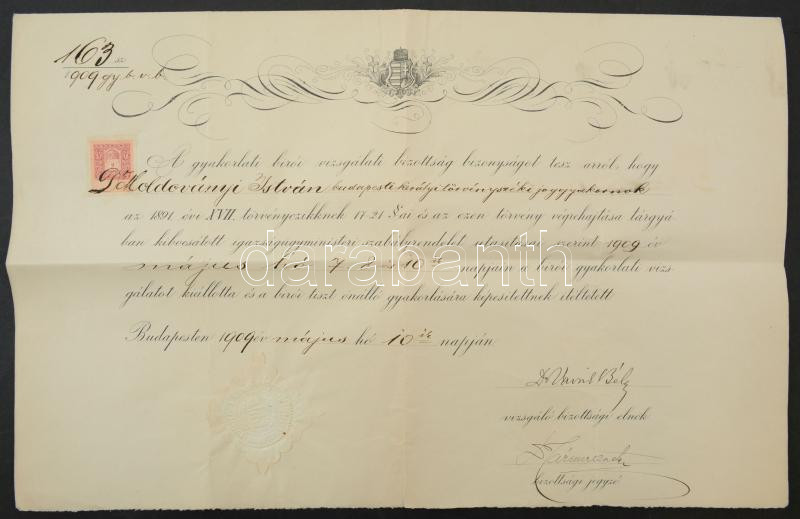 163 sz
1909 gy. b. v. b.
A gyakorlati birói vizsgálati bizottság bizonyságot tesz arról, hogy
Dr Moldoványi István budapesti királyi törvényszéki joggyakornok
az 1891. évi XVII. törvényczikknek 17-21 §§ai és az ezen törvény végrehajtása tárgyá-
ban kibocsátott igazságügyministeri szabályrendelet utasításai szerint 1909 év
május hó 7 és 10 ik napjain a birói gyakorlati vizs-
gálatot kiállotta és a birói tiszt önálló gyakorlására képesitettnek itéltetett
Budapesten 1909 év május hó 10 ik napján
darabanth
Dr Béla
vizsgáló bizottsági elnök
bizottsági jegyző